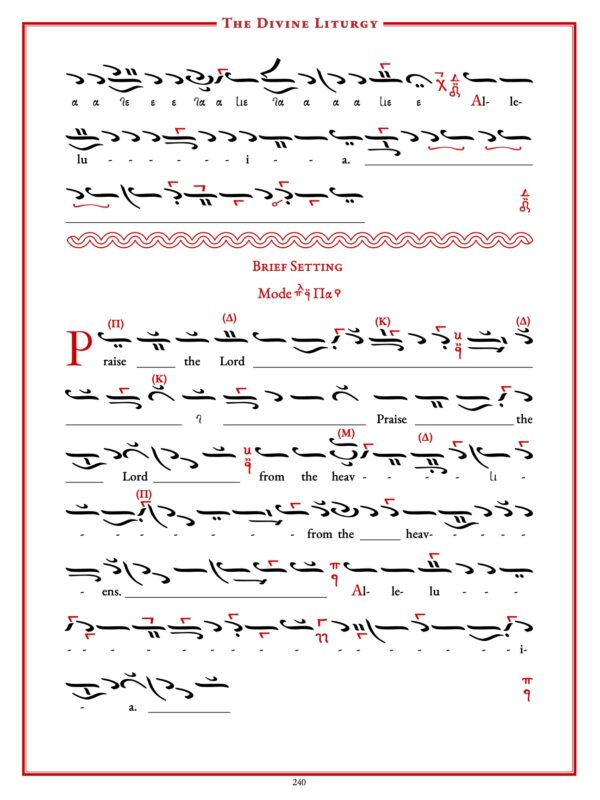 THE DIVINE LITURGY
α α ἰε ε ε ἰα α ιιε ἰα α α α ιιε ε Al- le-
lu - - - - - - - i - - a.
BRIEF SETTING
Mode Πα
(Π) (Δ) (Κ) (Δ)
Praise the Lord
(Κ)
Praise the
(Μ) (Δ)
Lord from the heav - - - - -
(Π)
- - - - - - - - - from the heav- - - - -
- ens. Al- le- lu - - -
- - - - - - - - - - - - - - - - i-
- a.
240